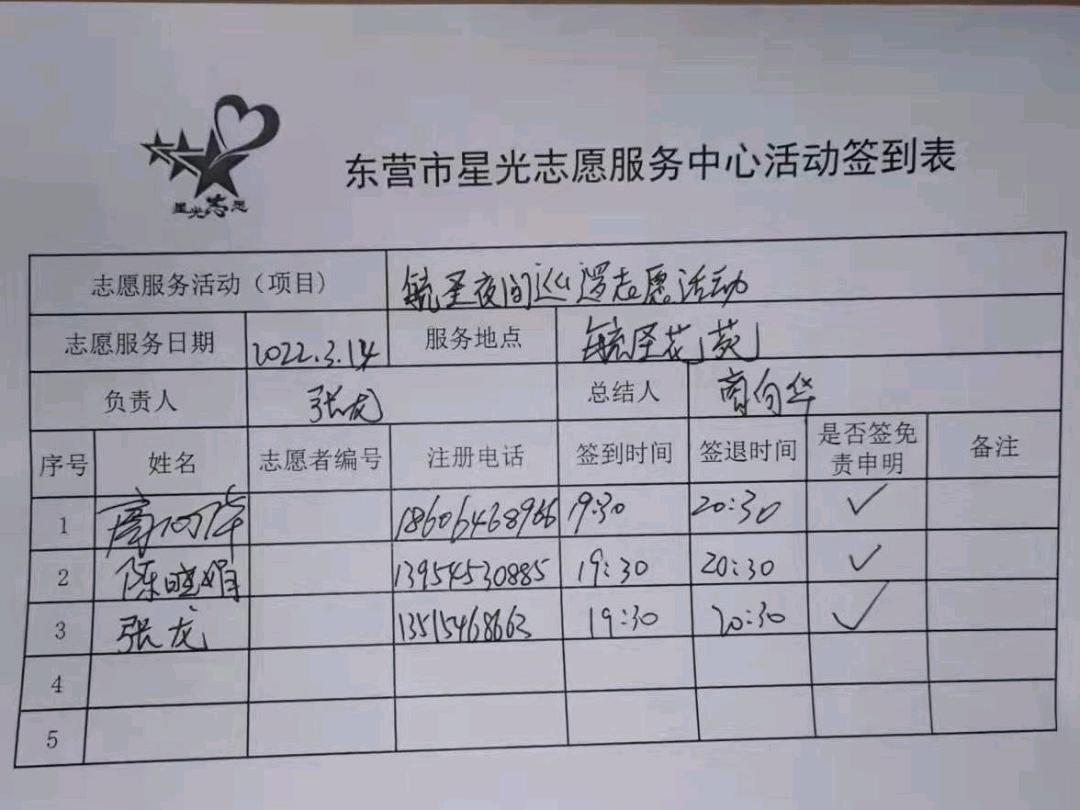 星光志愿
东营市星光志愿服务中心活动签到表
志愿服务活动（项目） 毓圣夜间巡逻志愿活动
志愿服务日期 2022.3.14 服务地点 毓圣花苑
负责人 张龙 总结人 向华
序号 姓名 志愿者编号 注册电话 签到时间 签退时间 是否签免责申明 备注
1 18606468966 19:30 20:30 ✓
2 陈晓娟 13954530885 19:30 20:30 ✓
3 张龙 13515468663 19:30 20:30 ✓
4
5